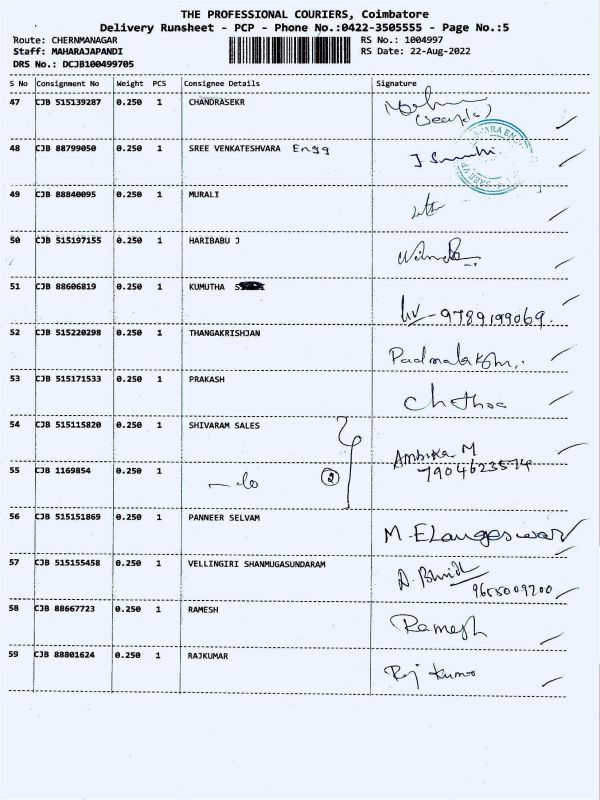 THE PROFESSIONAL COURIERS, Coimbatore
Delivery Runsheet - PCP - Phone No.:0422-3505555 - Page No.:5
Route: CHERNMANAGAR RS No.: 1004997
Staff: MAHARAJAPANDI RS Date: 22-Aug-2022
DRS No.: DCJB100499705
S No Consignment No Weight PCS Consignee Details Signature
47 CJB 515139287 0.250 1 CHANDRASEKR
48 CJB 88799050 0.250 1 SREE VENKATESHVARA Engg
49 CJB 88840095 0.250 1 MURALI
50 CJB 515197155 0.250 1 HARIBABU J
51 CJB 88606819 0.250 1 KUMUTHA
- 9789199069.
52 CJB 515220298 0.250 1 THANGAKRISHJAN
53 CJB 515171533 0.250 1 PRAKASH
54 CJB 515115820 0.250 1 SHIVARAM SALES Ambika M
7904623574
55 CJB 1169854 0.250 1 - do 2
56 CJB 515151869 0.250 1 PANNEER SELVAM M. ELangeswar
57 CJB 515155458 0.250 1 VELLINGIRI SHANMUGASUNDARAM
9655009200
58 CJB 88667723 0.250 1 RAMESH Ramesh
59 CJB 88801624 0.250 1 RAJKUMAR Raj Kumar